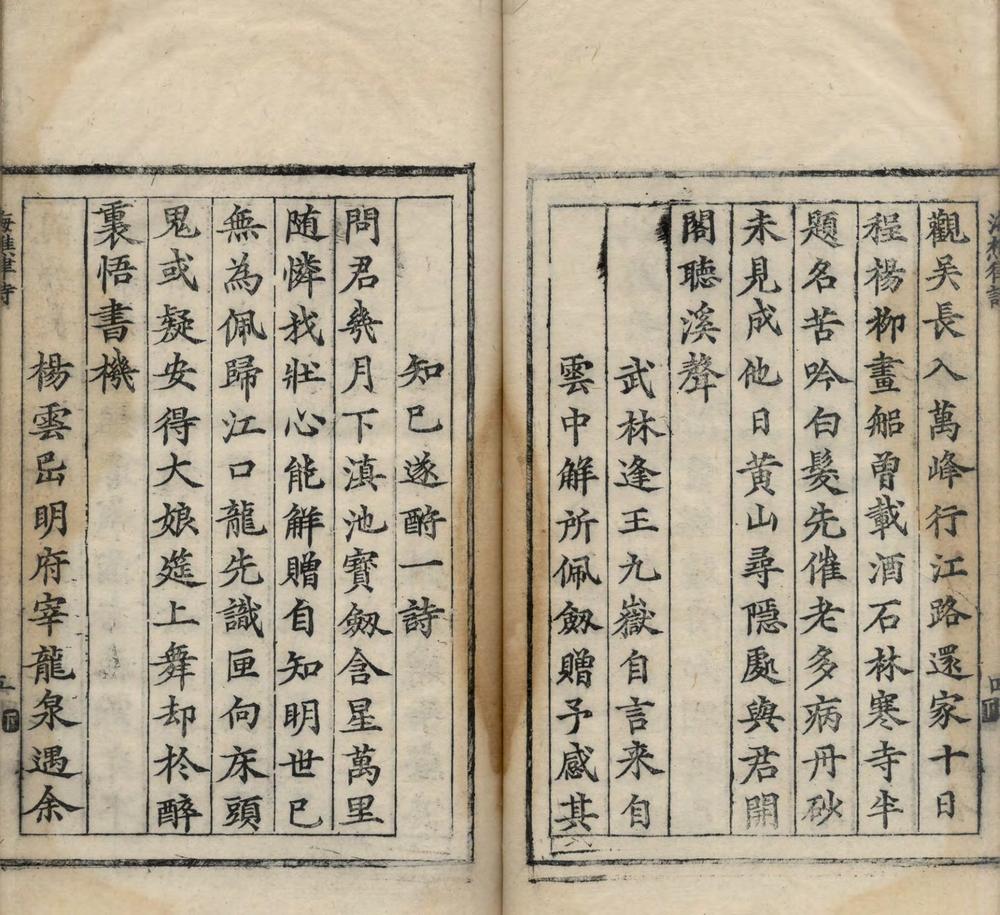 觀吴長入萬峰行江路還家十日
程楊柳畫船曾載酒石林寒寺半
題名苦吟白髮先催老多病丹砂
未見成他日黄山尋隱處與君開
閣聽溪聲
武林逢王九嶽自言来自
雲中解所佩劔贈予感其
知己遂酧一詩
問君幾月下滇池寶劔含星萬里
随憐我壯心能解贈自知明世已
無為佩歸江口龍先識匣向床頭
鬼或疑安得大娘筵上舞却於醉
裏悟書機
楊雲岊明府宰龍泉遇余